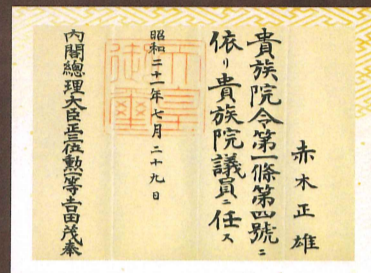 赤木正雄
貴族院令第一條第四號ニ
依リ貴族院議員ニ任ス
天皇御璽
昭和二十一年七月二十九日
內閣總理大臣正三位勲一等吉田茂奉